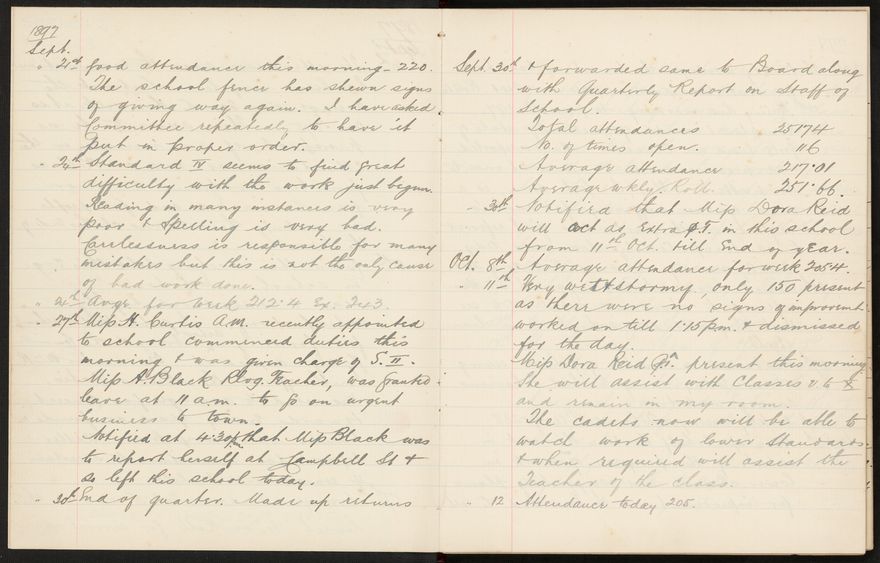 1897
Sept.
" 21st Good attendance this morning - 220.
The school fence has shewn signs
of giving way again. I have asked
Committee repeatedly to have it
put in proper order.
" 24th Standard IV seems to find great
difficulty with the work just begun.
Reading in many instances is very
poor & Spelling is very bad.
Carelessness is responsible for many
mistakes but this is not the only cause
of bad work done.
" 24th Avge for Week 212.4 Ex. 243.
" 27th Miss H. Curtis A.M. recently appointed
to school commenced duties this
morning & was given charge of S. II.
Miss A. Black Rlvg. Teacher, was granted
leave at 11 a.m. to go on urgent
business to town.
Notified at 4.30 p.m. that Miss Black was
to report herself at Campbell St &
so left this school today.
" 30th End of quarter. Made up returns
Sept. 30th & forwarded same to Board along
with Quarterly Report on Staff of
School.
Total attendances 25174
No. of times open. 116
Average attendance 217.01
Average wkly. Roll. 251.66.
" 30th Notified that Miss Dora Reid
will act as Extra P.T. in this school
from 11th Oct. till End of year.
Oct. 8th Average attendance for week 205.4.
" 11th Very wet & stormy, only 150 present
as there were no signs of improvemt
worked on till 1.15 p.m. & dismissed
for the day.
Miss Dora Reid P.T. present this morning
She will assist with Classes V to X
and remain in my room.
The cadets now will be able to
watch work of lower Standards
& when required will assist the
Teacher of the class.
" 12 Attendance today 205.